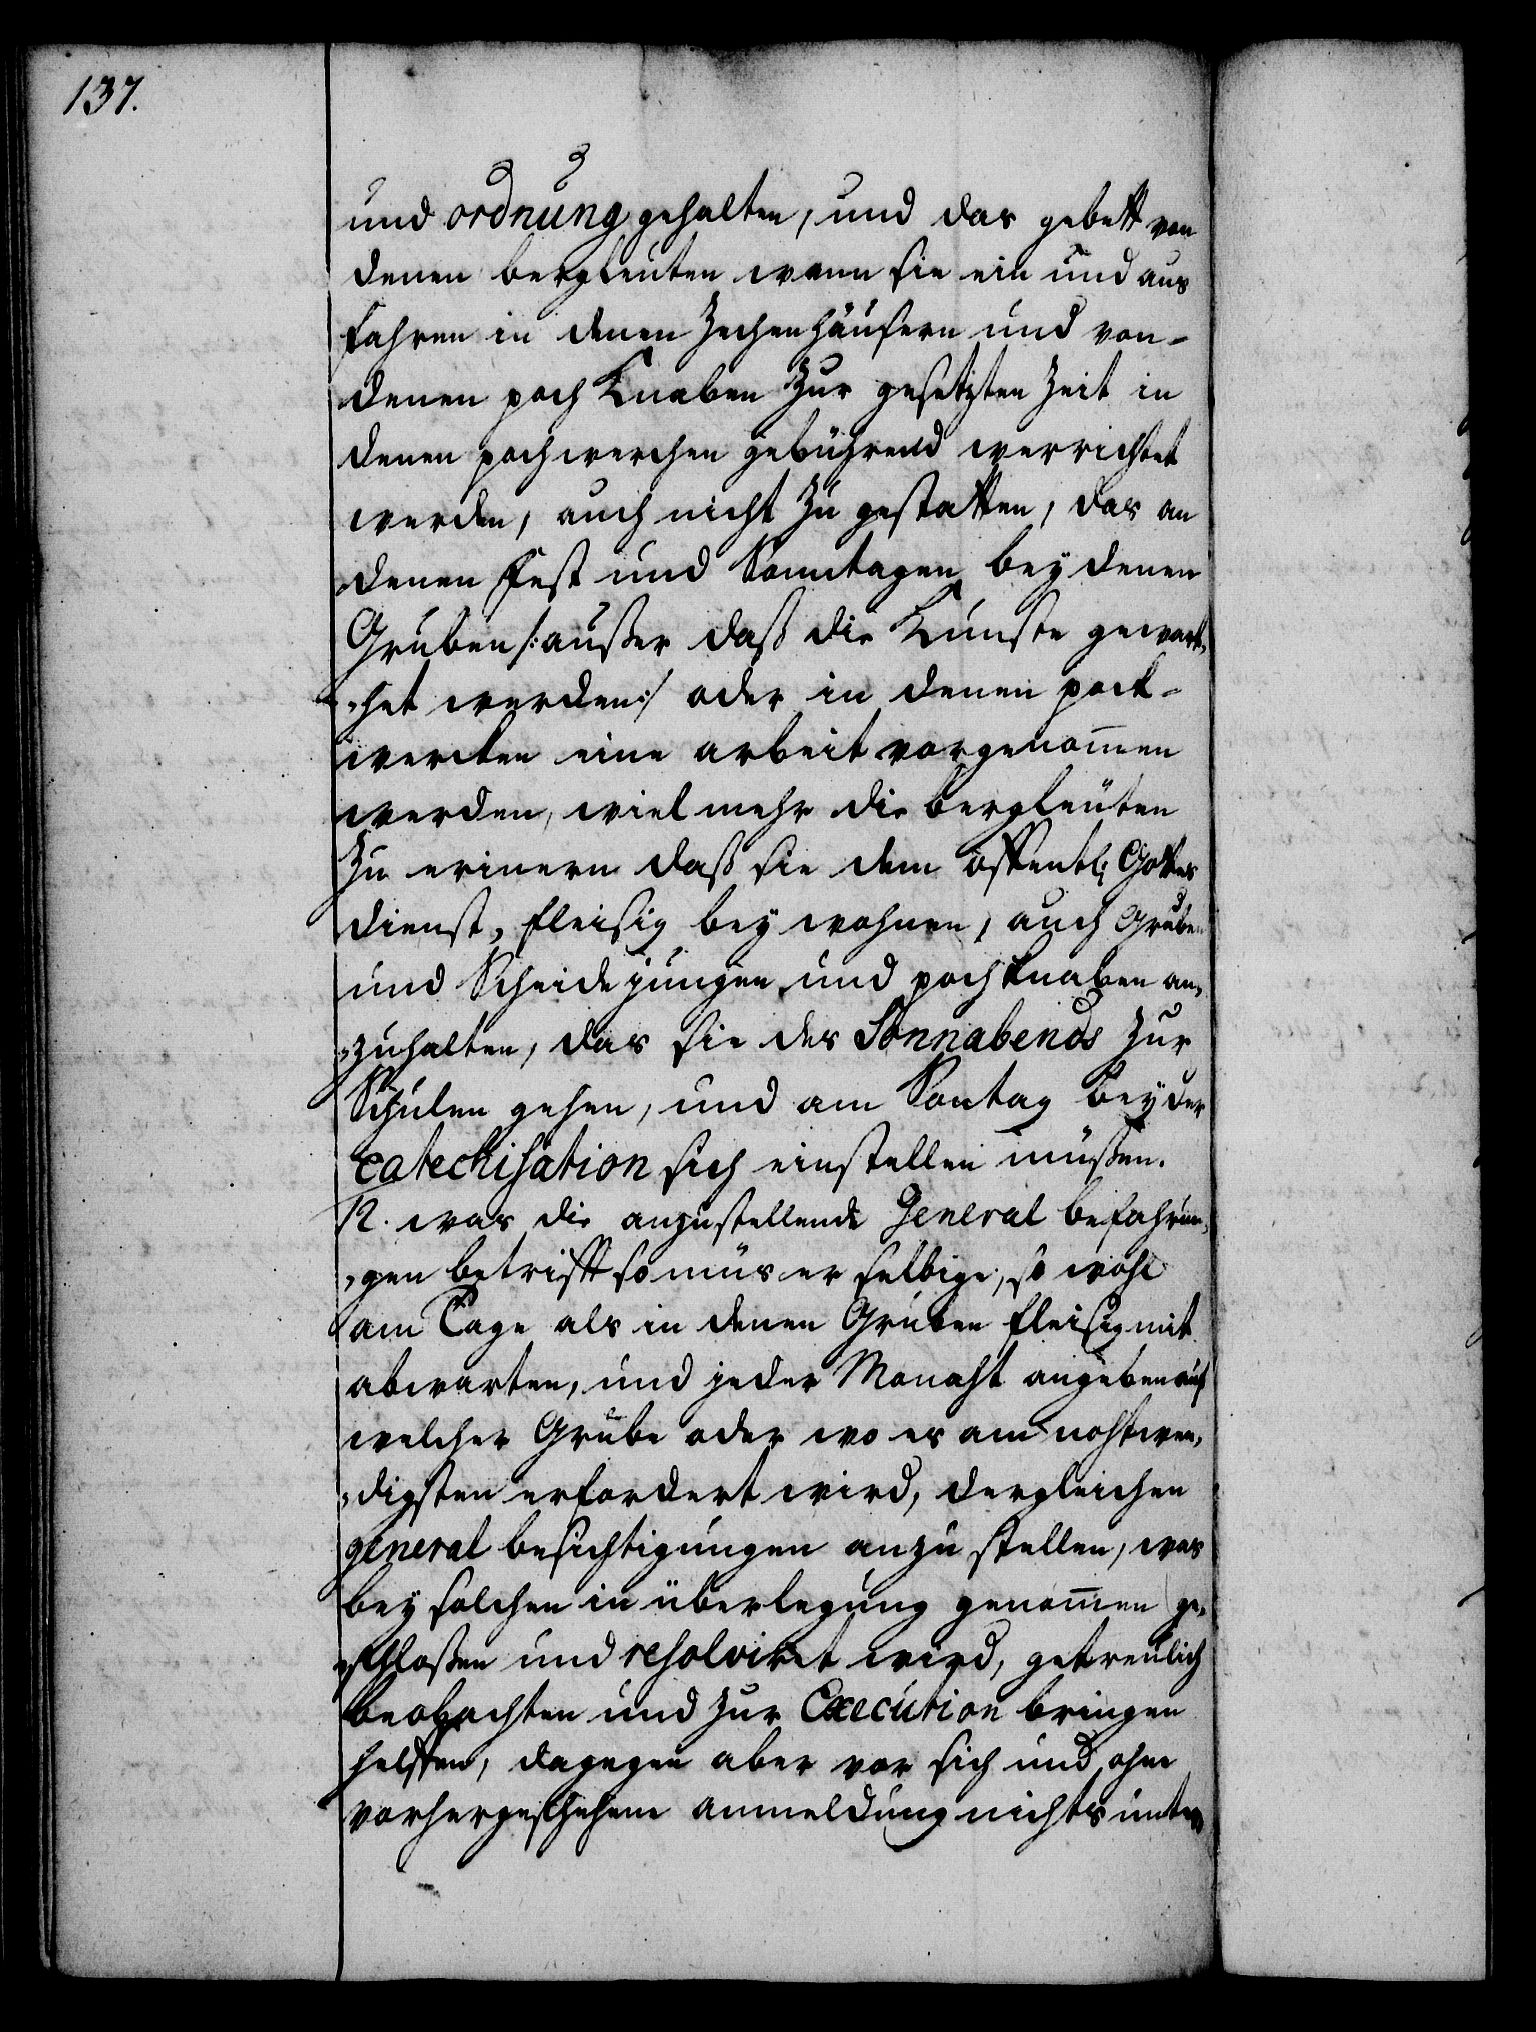 137.
und ordnung gehalten, und das gebett von
denen bergleuten wann sie ein und aus
fahren in denen Zechenhäusern und von-
denen poch Knaben Zur gesetzten Zeit in
denen pochwerchen gebührend verrichtet
werden, auch nicht Zu gestatten, das an
denen Fest und Sonntagen bey denen
Gruben /: außer daß die Künste gewart,
,het werden :/ oder in denen poch-
wercken eine arbeit vorgenom̅en
werden, viel mehr die bergleüten
Zu erinern daß sie dem öffentl: Gottes
dienst, fleisig bey wohnen, auch Gruben
und Scheide jungen und poch knaben an,
,zuhalten, das sie des Sonnabends Zur
Schulen gehen, und am Sontag bey der
catechisation sich einstellen müßen.
12. was die anzustellende General befahrun,
,gen betrifft so mus er selbige, so wohl
am Tage als in denen Gruben fleisig mit
abwarten, und jeder Monaht angeben auf
welcher Grube oder wo es am nohtwen,
,digsten erfordert wird, dergleichen
general besichtigungen anzu stellen, was
bey solchen in überlegung genom̅en ge,
,schloßen und resolviret wird, getreülich
beobachten und Zur Execution bringen
helffen, dagegen aber vor sich und ohne
vorhergeschehene anmeldung nichts unter,